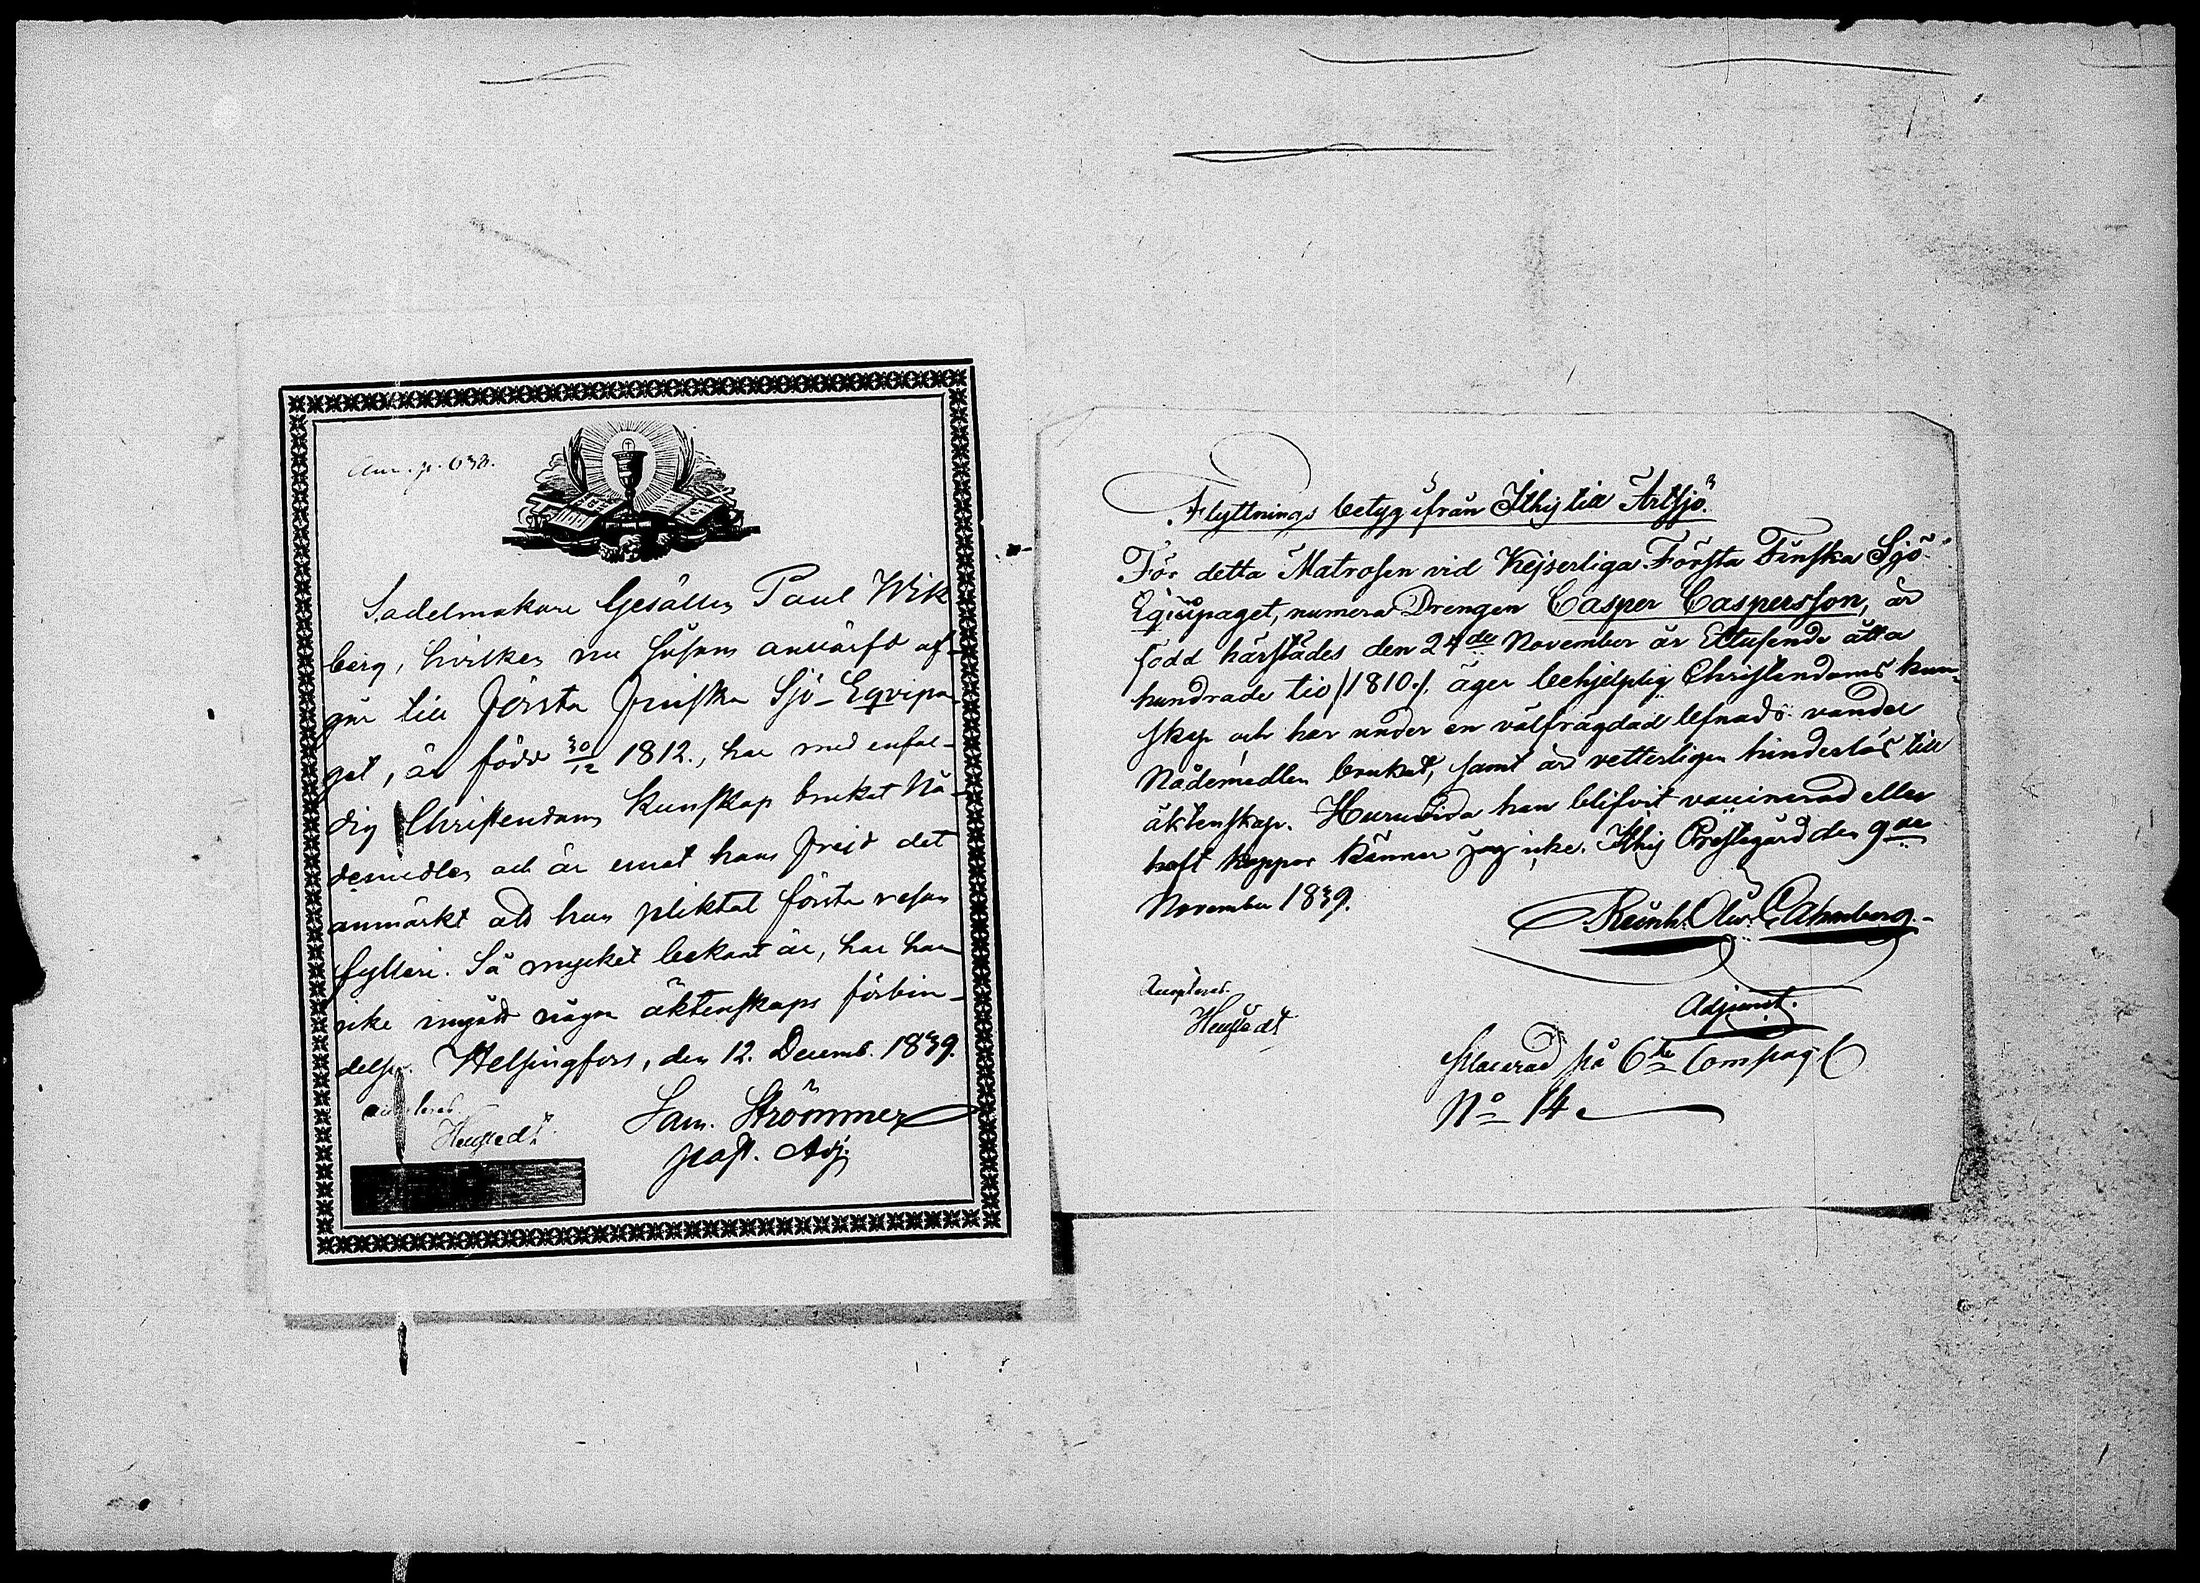 Ann. p. 638.
Sadelmakare Gesällen Paul Wik
berg, hvilken nu såsom anvärfd af-
går till Första Finska Sjö-Eqvipa
get, är född 30/12 1812., har med enfal-
dig Christendoms kunskap brukat Nå-
demedlen och är emot hans frejd det
anmärkt att han pliktat första resan
fylleri. Så mycket bekant är, har han
icke ingått någon äktenskaps förbin-
delse. Helsingfors, den 12. Decemb. 1839.
Sam. Strömmer
past. Adj.
Flyttnings betyg ifrån Ithis till Artsjö.
För detta Matrosen vid Kejserliga Första Finska Sjö-
Equipaget, numera Drengen Casper Caspersson, är
född härstädes den 24de November år Ettusende åtta
hundrade tio /1810./. äger behjelplig Christendoms kun-
skap och har under en välfrägdad lefnads vandel
Nådemedlen brukat, samt är vetterligen hinderlös till
äktenskap. Huruvida han blifvit vaccinerad eller
haft koppor känner jag icke. Ithis Prestegård den 9de
November 1839.
Reinh. Olw. Calamberg
Adjunct.
Accepteras.
placerad på 6te Compagt
No 14